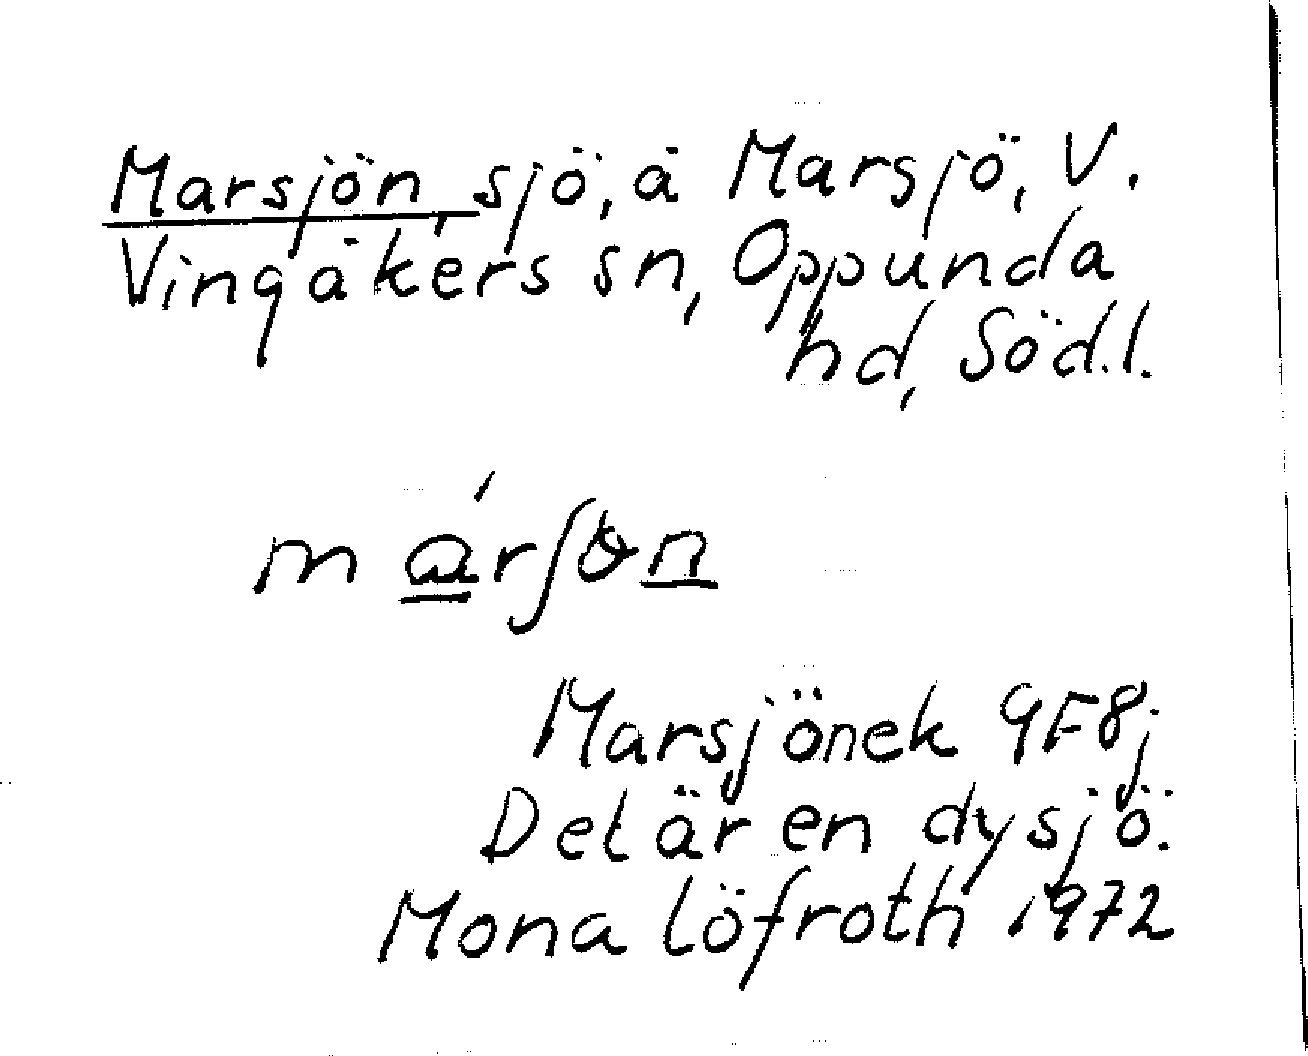 Marsjön, sjö, å Marsjö, V.
Vingåkers sn, Oppunda
hd, Söd.l.
Marsjönek 9F8j
Det är en dysjö.
Mona Löfroth 1972